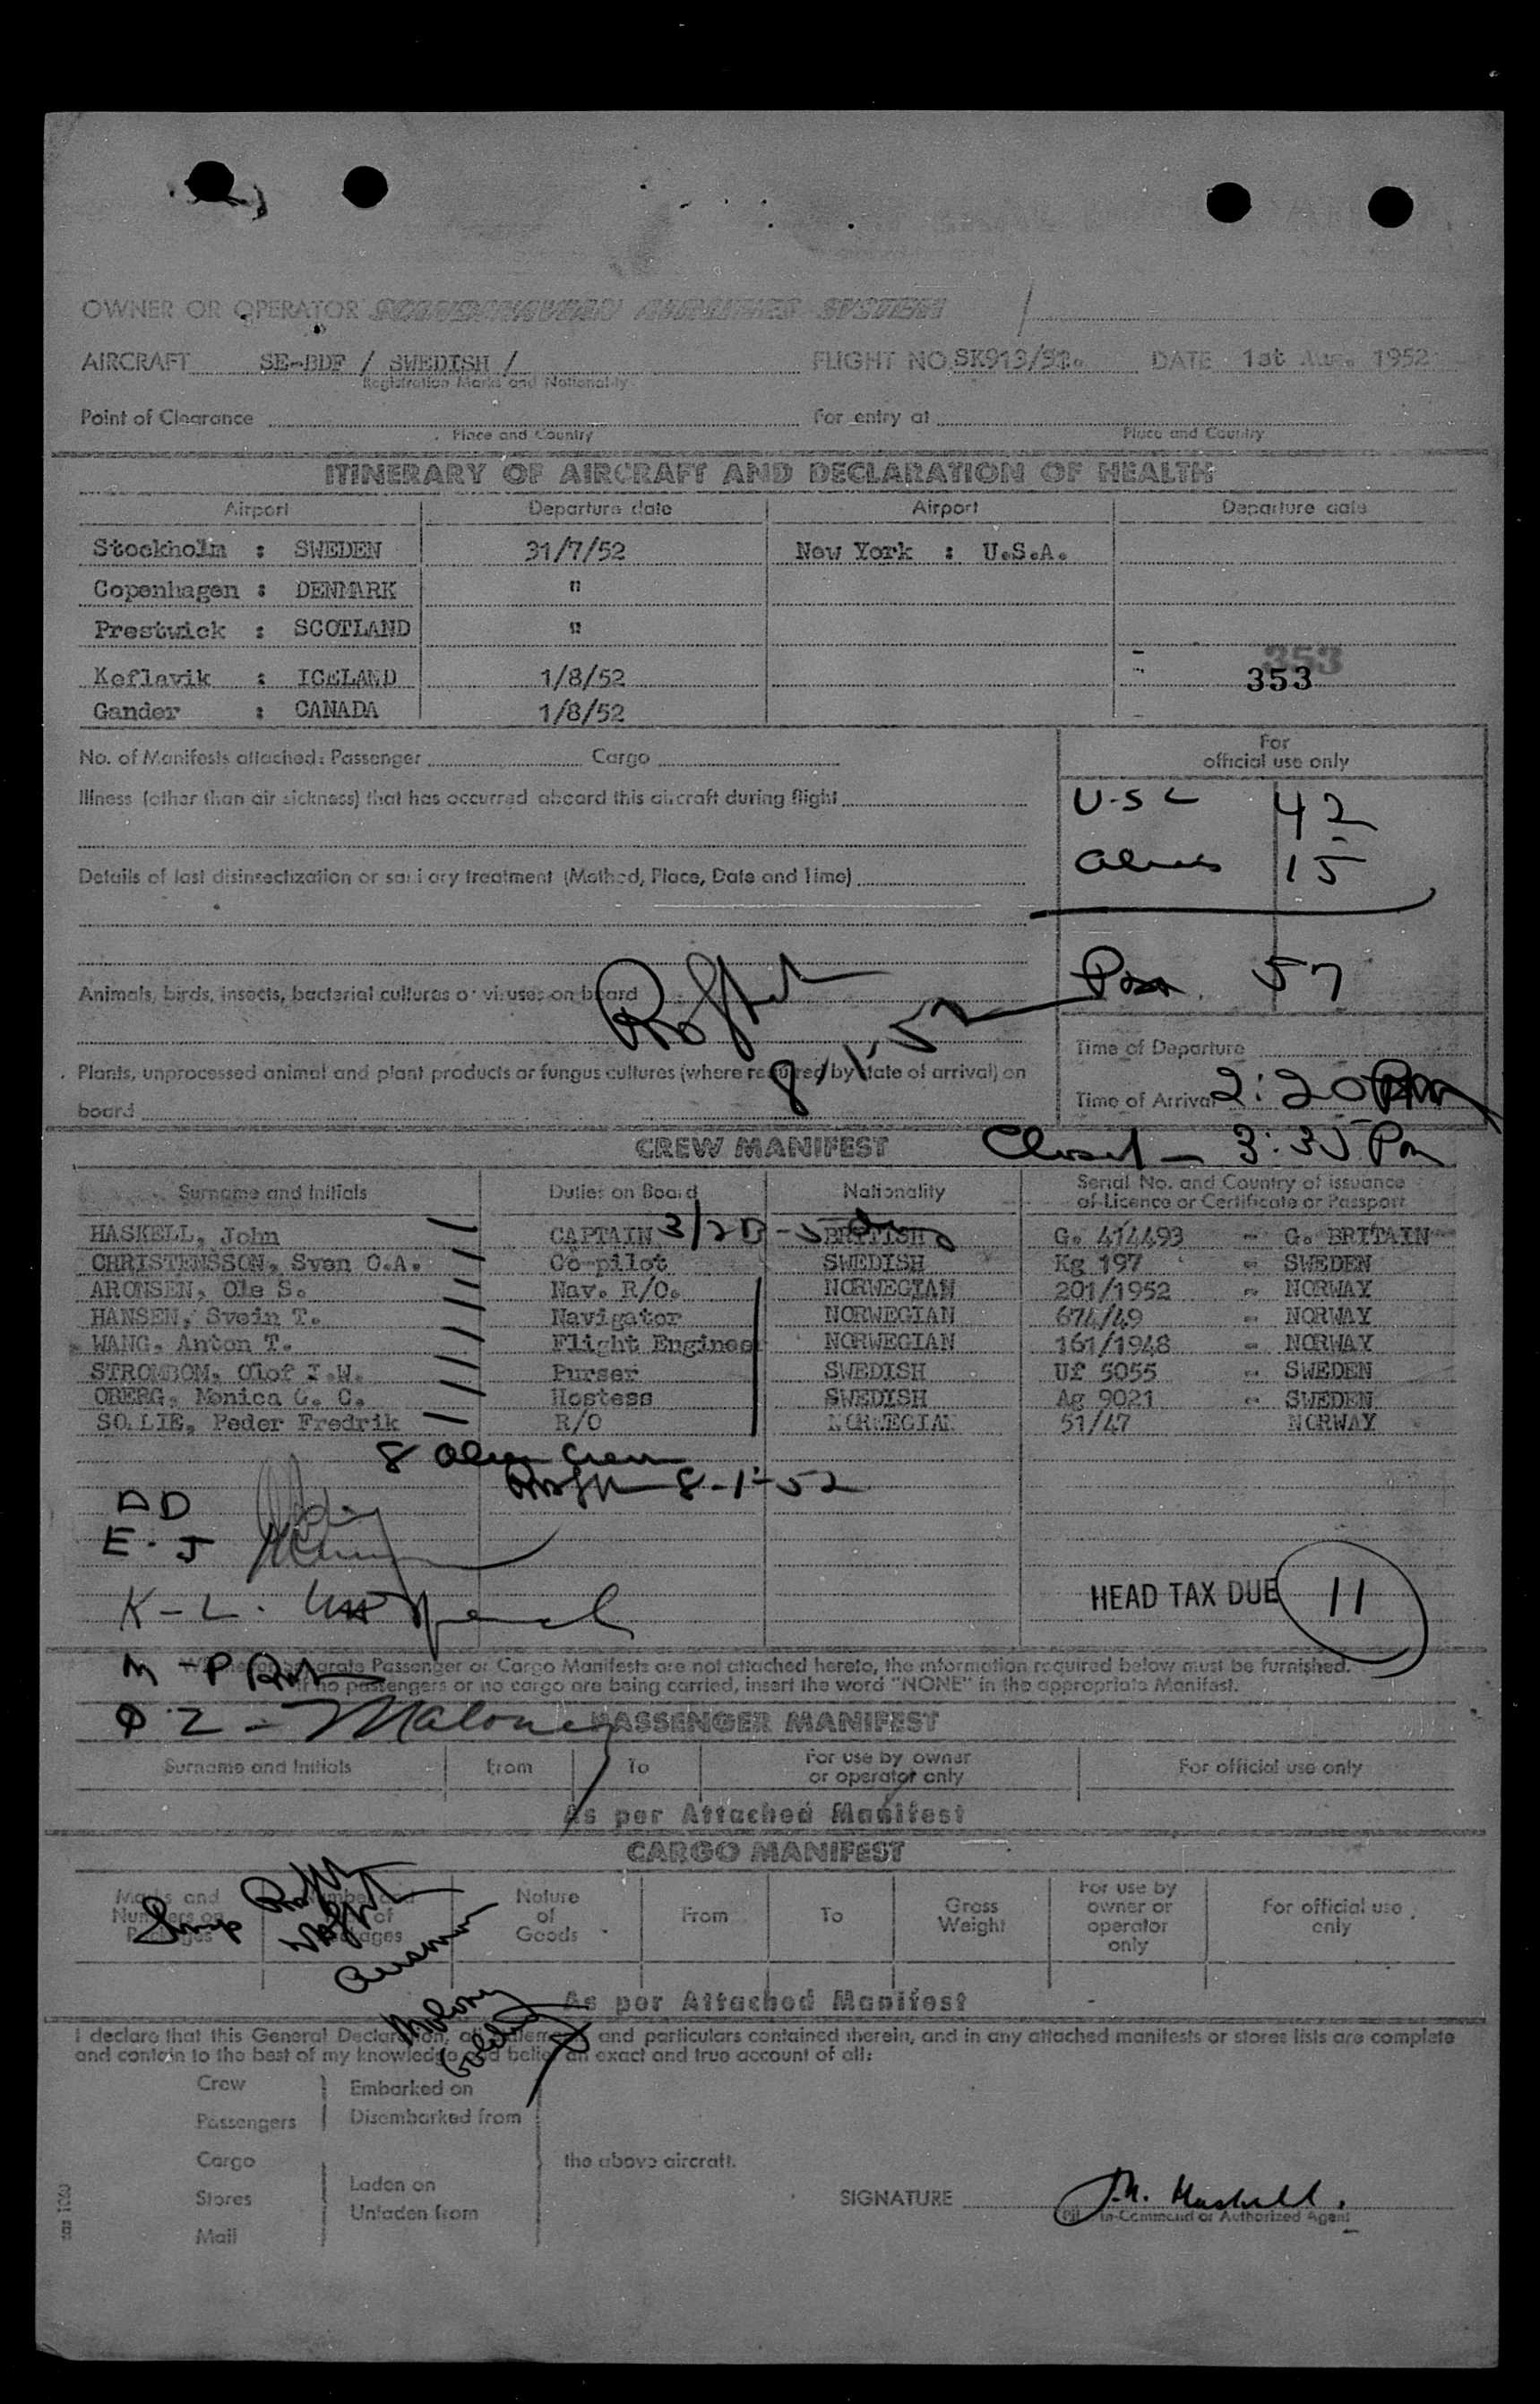 OWNER OR OPERATOR SCANDINAVIAN AIRLINES SYSTEM
AIRCRAFT SE-BDF / SWEDISH / FLIGHT NO. SK913/31. DATE 1st Aug. 1952
Registration Marks and Nationality
Point of Clearance For entry at
Place and Country Place and Country
ITINERARY OF AIRCRAFT AND DECLARATION OF HEALTH
Airport Departure date Airport Departure date
Stockholm : SWEDEN 31/7/52 New York : U.S.A.
Copenhagen : DENMARK "
Prestwick : SCOTLAND "
353
Keflavik : ICELAND 1/8/52 353
Gander : CANADA 1/8/52
No. of Manifests attached: Passenger Cargo
For
official use only
Illness (other than air sickness) that has occurred aboard this aircraft during flight
U-S C 42
Details of last disinsectization or sanitary treatment (Method, Place, Date and Time)
Aliens 15
Pax 57
Animals, birds, insects, bacterial cultures or viruses on board
8/1/52
Time of Departure
Plants, unprocessed animal and plant products or fungus cultures (where required by state of arrival) on
board
Time of Arrival 2:20 PM
CREW MANIFEST Closed - 3:35 Pm
Surname and Initials Duties on Board Nationality Serial No. and Country of issuance
of Licence or Certificate or Passport
HASKELL, John CAPTAIN 3/2D BRITISH G. 414493 - G. BRITAIN
CHRISTENSSON, Sven O.A. Co-pilot SWEDISH Kg 197 - SWEDEN
ARONSEN, Ole S. Nav. R/O. NORWEGIAN 201/1952 - NORWAY
HANSEN, Svein T. Navigator NORWEGIAN 674/49 - NORWAY
WANG, Anton T. Flight Engineer NORWEGIAN 161/1948 - NORWAY
STROMBOM, Olof I.W. Purser SWEDISH Uf 5055 - SWEDEN
OBERG, Monica G. C. Hostess SWEDISH Ag 9021 - SWEDEN
SOLLIE, Peder Fredrik R/O NORWEGIAN 51/47 NORWAY
8 Alien Crew
8-1-52
AD
E - J
K - L.
HEAD TAX DUE 11
M - P
Whenever separate Passenger or Cargo Manifests are not attached hereto, the information required below must be furnished.
If no passengers or no cargo are being carried, insert the word "NONE" in the appropriate Manifest.
Q Z - Maloney
PASSENGER MANIFEST
Surname and Initials From To For use by owner
or operator only For official use only
As per Attached Manifest
CARGO MANIFEST
Marks and
Numbers on
Packages Number and
of
Packages Nature
of
Goods From To Gross
Weight For use by
owner or
operator
only For official use
only
Maloney
As per Attached Manifest
I declare that this General Declaration, all statements and particulars contained therein, and in any attached manifests or stores lists are complete
and contain to the best of my knowledge and belief an exact and true account of all:
Crew Embarked on
Passengers Disembarked from
Cargo the above aircraft.
Laden on
Stores
Unladen from
Mail
SIGNATURE J.H. Haskell.
Pilot in-Command or Authorized Agent
sas 1060